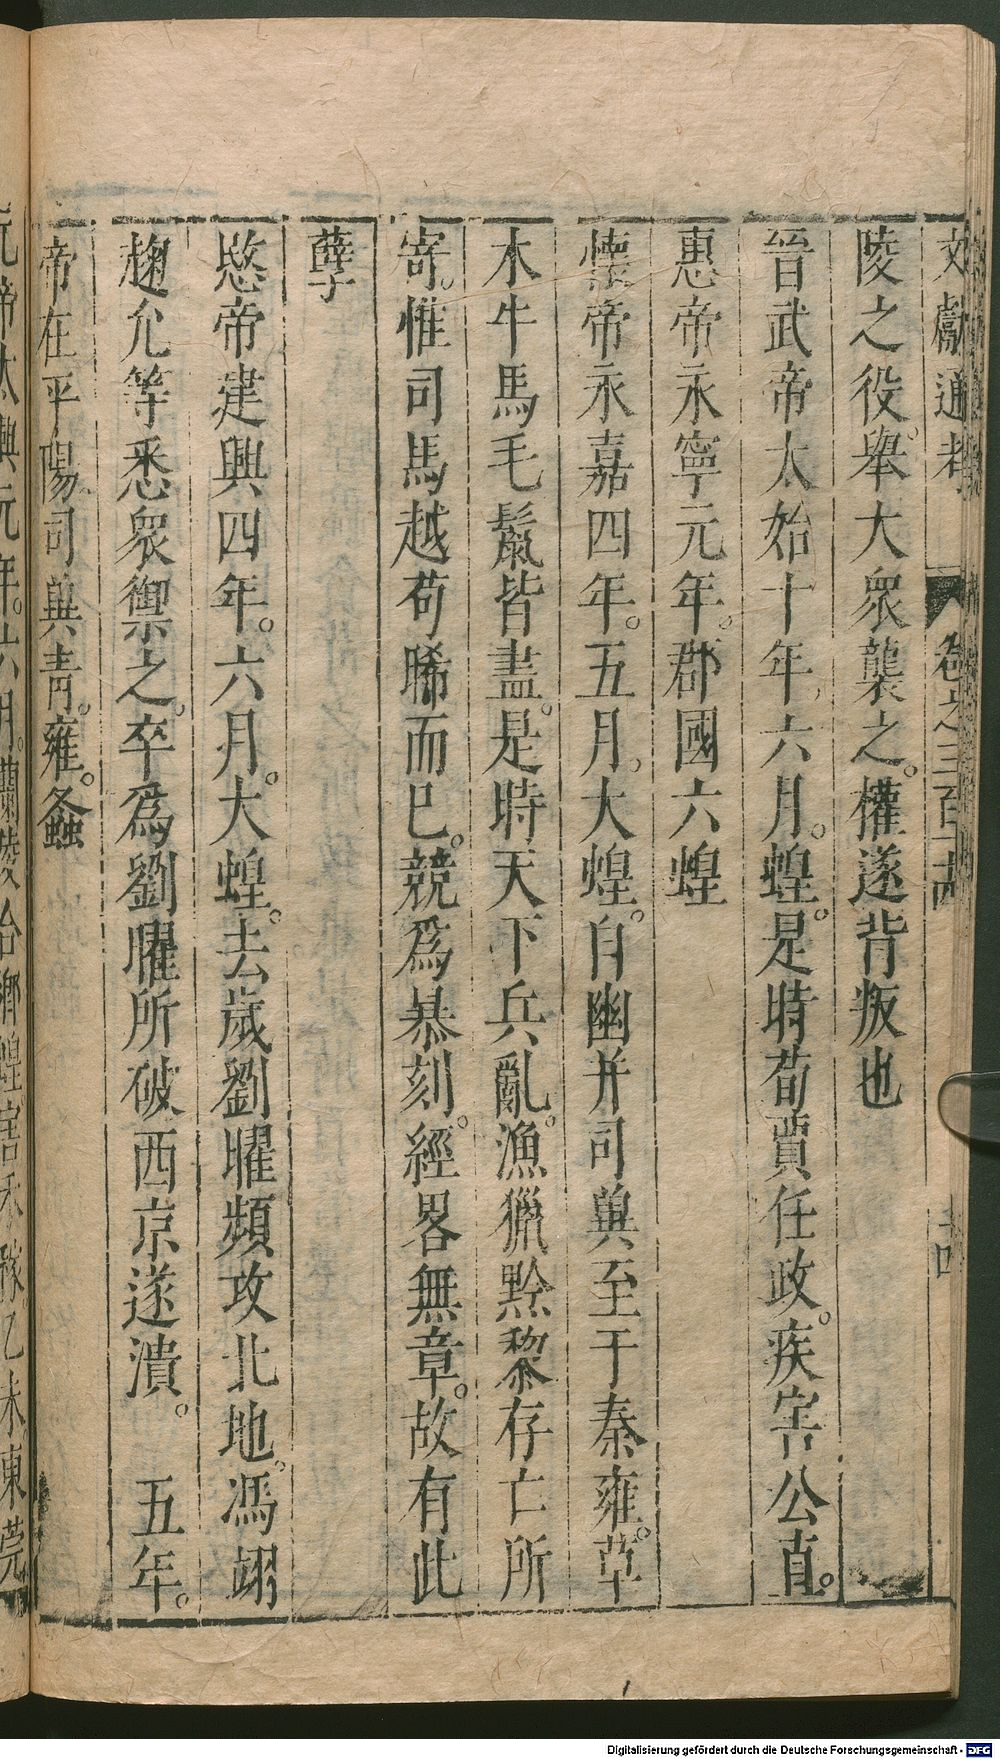 文獻通考 卷之三百十四 十四
陵之役舉大衆襲之。權遂背叛也
晉武帝太始十年六月。蝗。是時荀賈任政。疾害公直。
惠帝永寧元年。郡國六蝗
懷帝永嘉四年。五月。大蝗。自幽并司兾至于秦雍。草
木牛馬毛鬣皆盡。是時天下兵亂。漁獵黔黎存亡所
寄。惟司馬越苟晞而已。競爲暴刻。經畧無章。故有此
孽
愍帝建興四年。六月。大蝗。去歲劉曜頻攻北地。馮翊
麹允等悉衆禦之。卒爲劉曜所破西京遂潰。 五年。
帝在平陽司兾青。雍。螽
元帝太興元年。六月。蘭陵合鄉蝗害禾稼。乙未。東莞
Digitalisierung gefördert durch die Deutsche Forschungsgemeinschaft - DFG